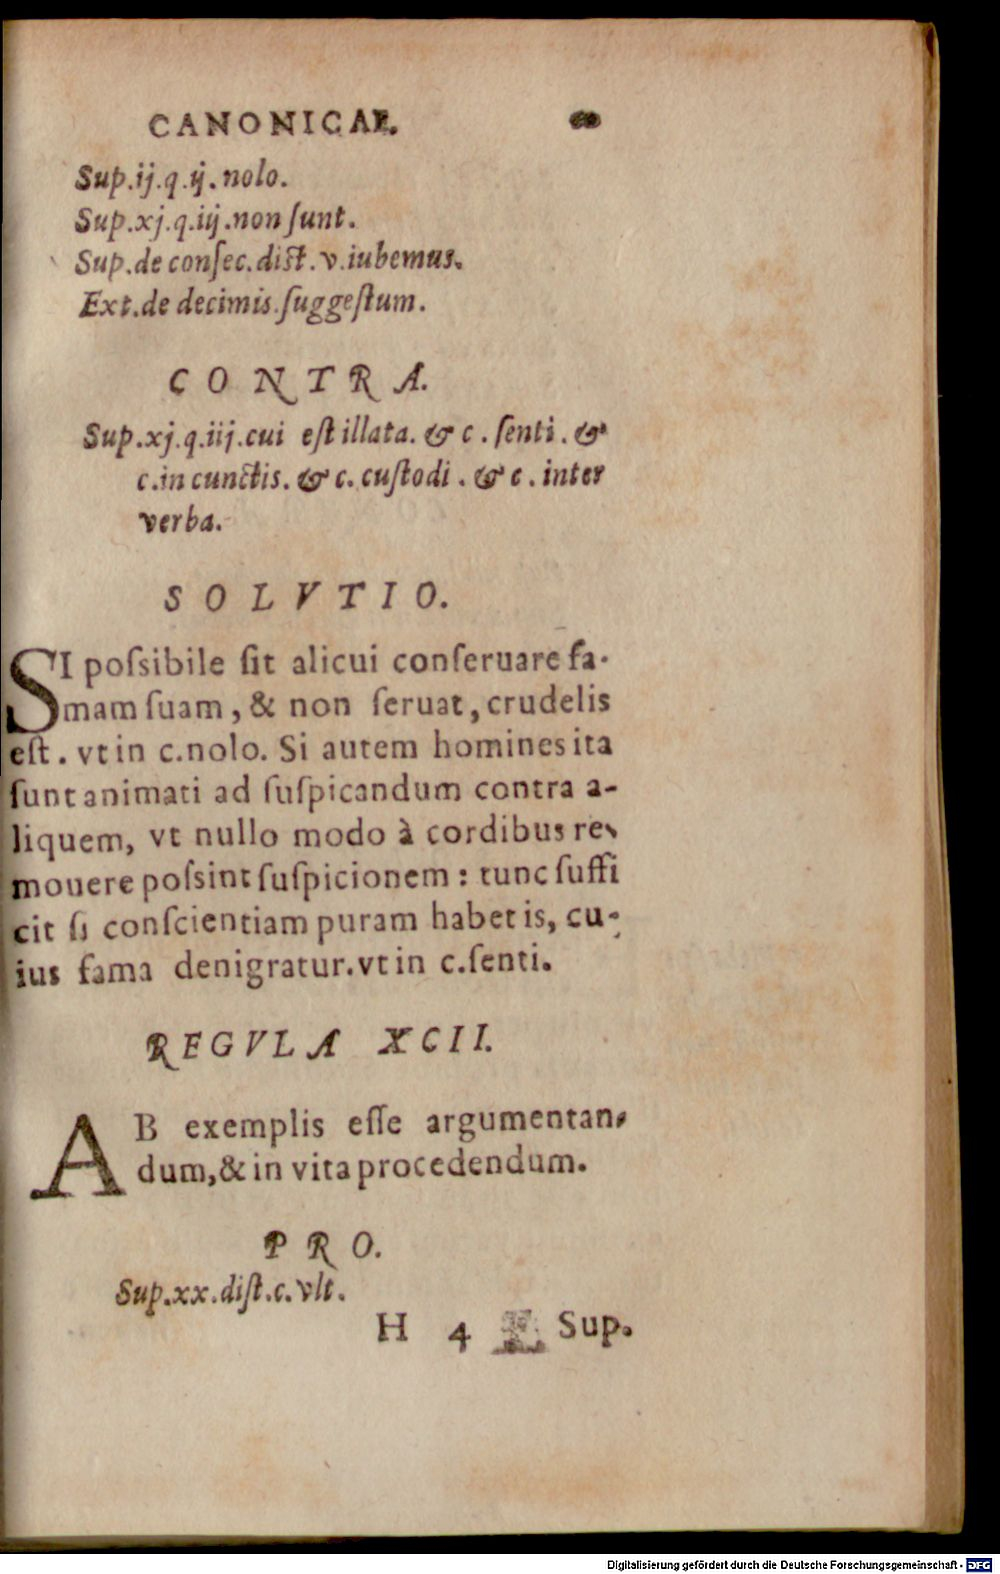 CANONICAE. 60
Sup.ij.q.ij.nolo.
Sup.xj.q.iij.non ſunt.
Sup.de conſec.diſt.v.iubemus.
Ext.de decimis.ſuggeſtum.
CONTRA.
Sup.xj.q.iij.cui eſt illata. & c. ſenti. &
c.in cunctis. & c. cuſtodi. & c. inter
verba.
SOLVTIO.
SI poſsibile ſit alicui conſeruare fa-
mam ſuam, & non ſeruat, crudelis
eſt. vt in c.nolo. Si autem homines ita
ſunt animati ad ſuſpicandum contra a-
liquem, vt nullo modo à cordibus re-
mouere poſsint ſuſpicionem: tunc ſuffi
cit ſi conſcientiam puram habet is, cu-
ius fama denigratur.vt in c.ſenti.
REGVLA XCII.
AB exemplis eſſe argumentan-
dum,& in vita procedendum.
PRO.
Sup.xx.diſt.c.vlt.
H 4 Sup.
Digitalisierung gefördert durch die Deutsche Forschungsgemeinschaft - DFG